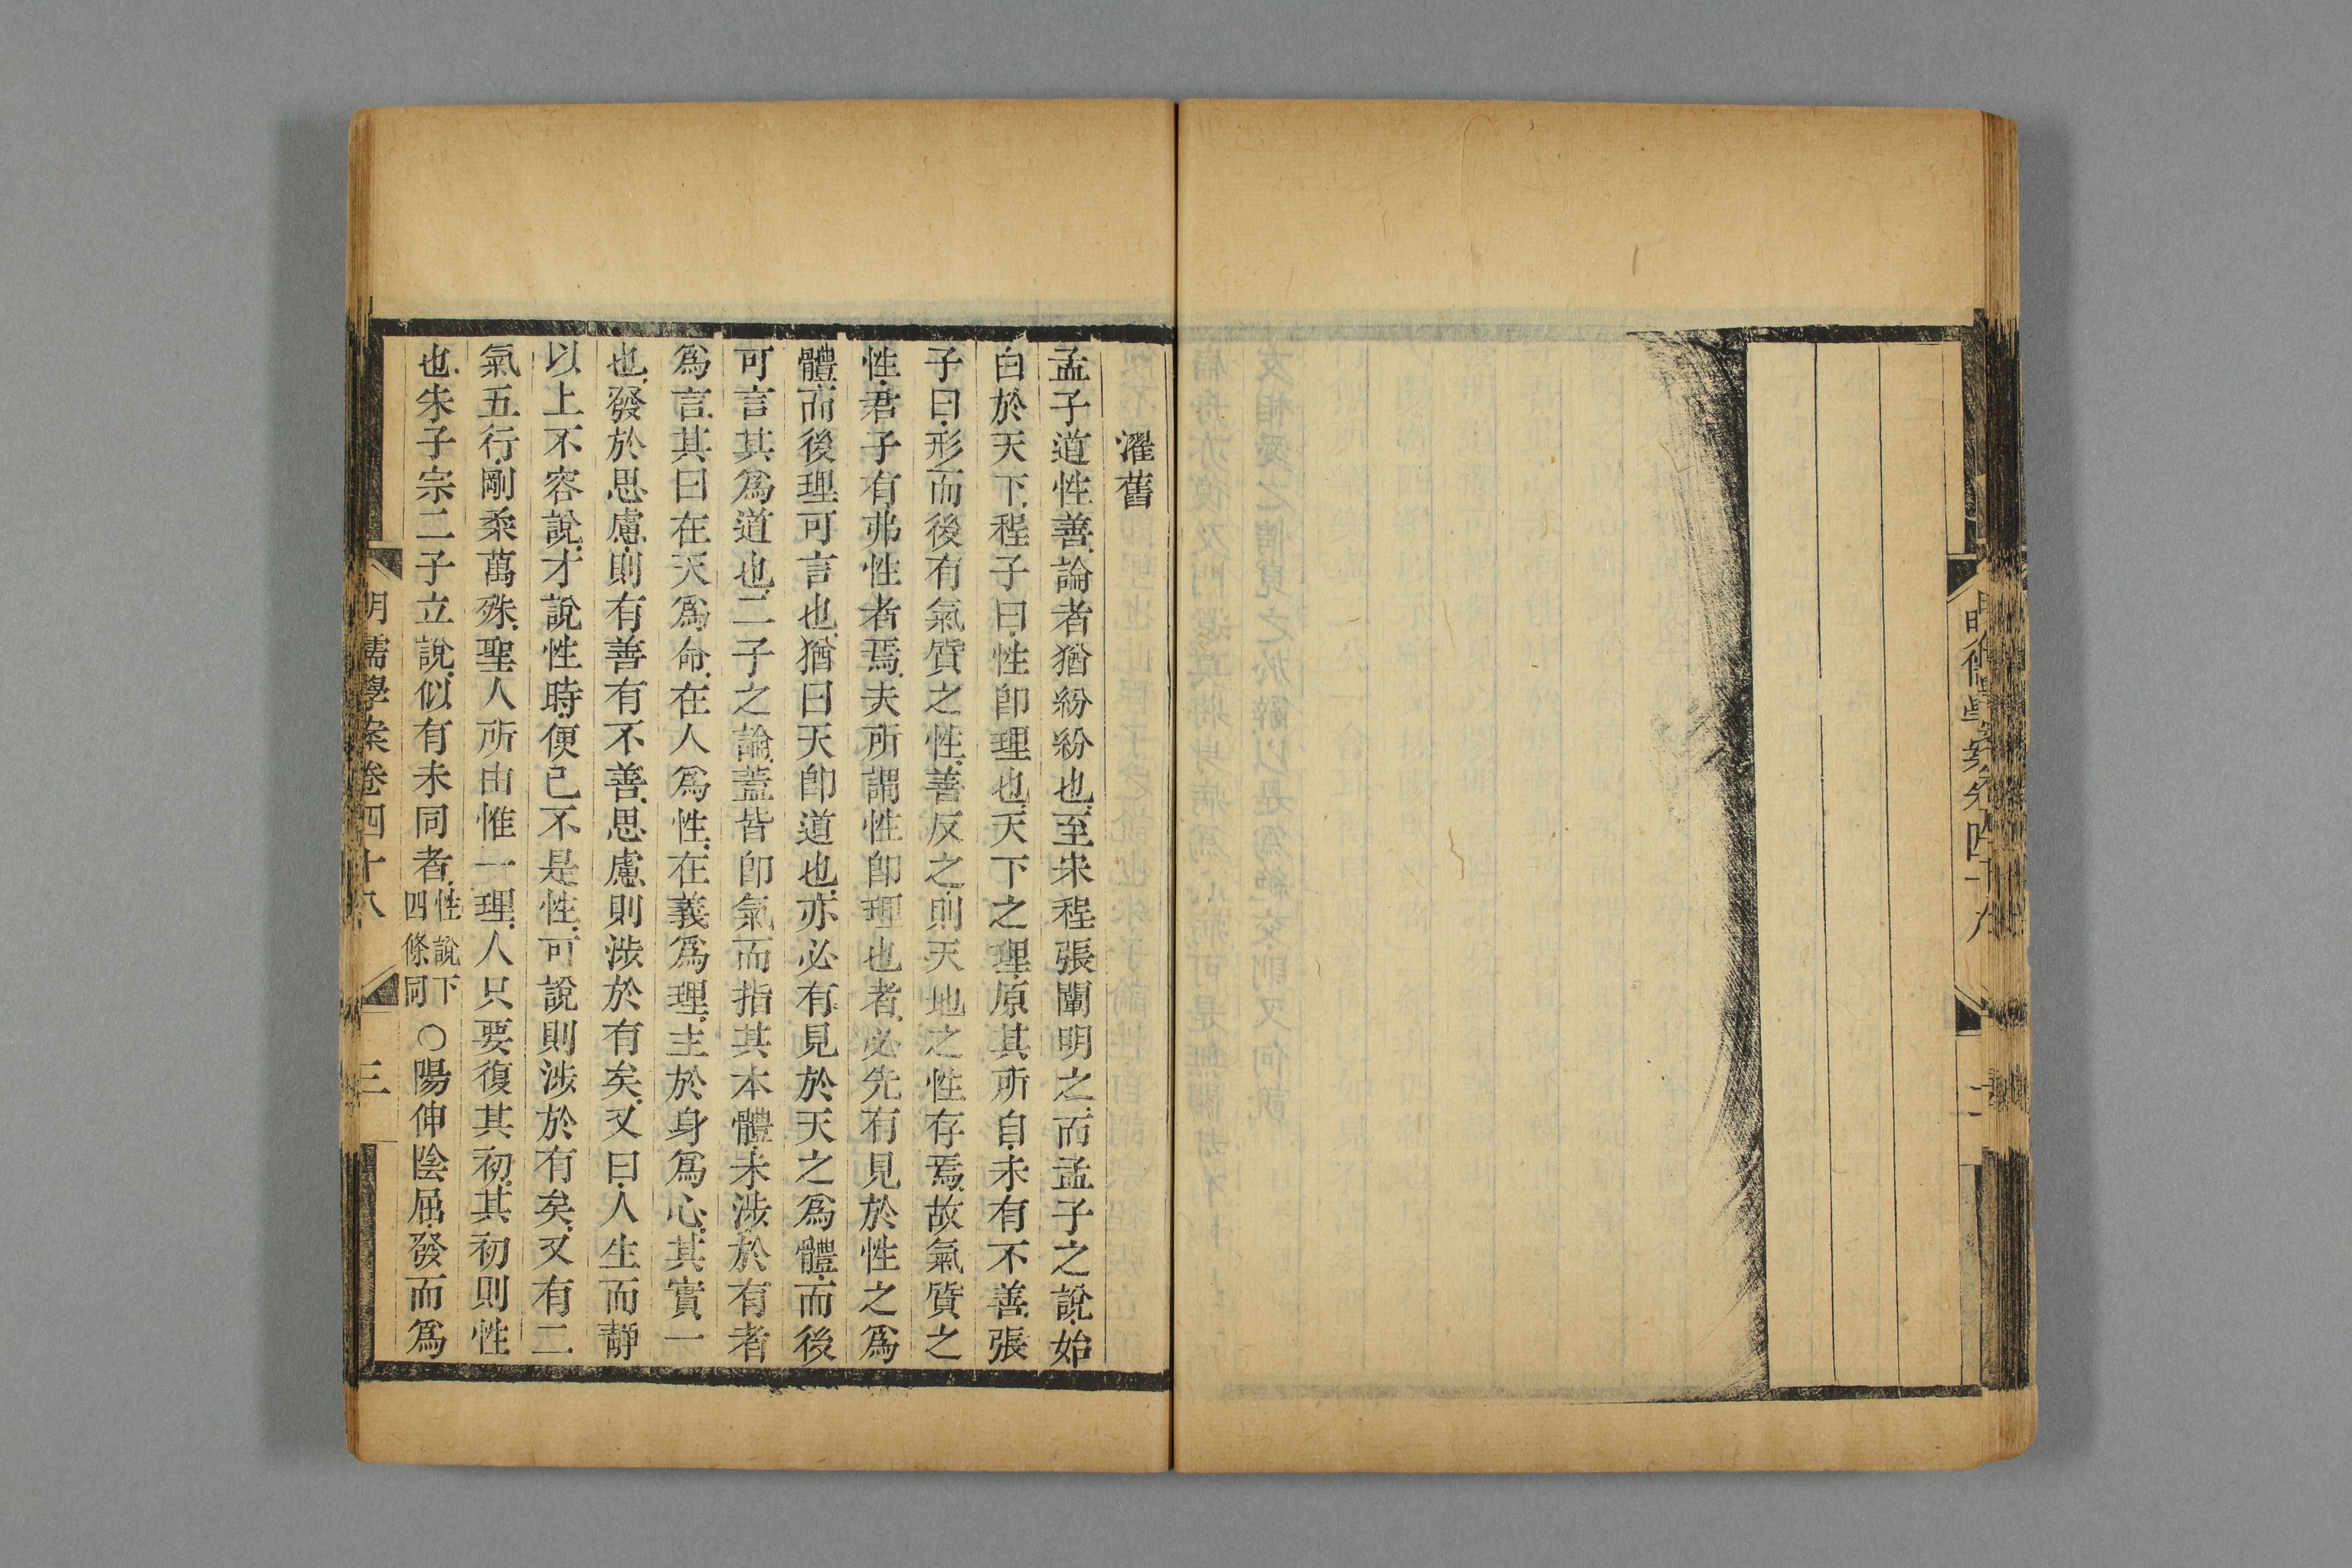 濯舊
孟子道性善論者猶紛紛也至宋程張闡明之而孟子之說始
白於天下程子曰性卽理也天下之理原其所自未有不善張
子曰形而後有氣質之性善反之則天地之性存焉故氣質之
性君子有弗性者焉夫所謂性卽理也者必先有見於性之爲
體而後理可言也猶曰天卽道也亦必有見於天之爲體而後
可言其爲道也二子之論蓋皆卽氣而指其本體未涉於有者
爲言其曰在天爲命在人爲性在義爲理主於身爲心其實一
也發於思慮則有善有不善思慮則涉於有矣又曰人生而靜
以上不容說才說性時便已不是性可說則涉於有矣又有二
氣五行剛柔萬殊聖人所由惟一理人只要復其初其初則性
也朱子宗二子立說似有未同者性說下四條同○陽伸陰屈發而爲
明儒學案卷四十八
三